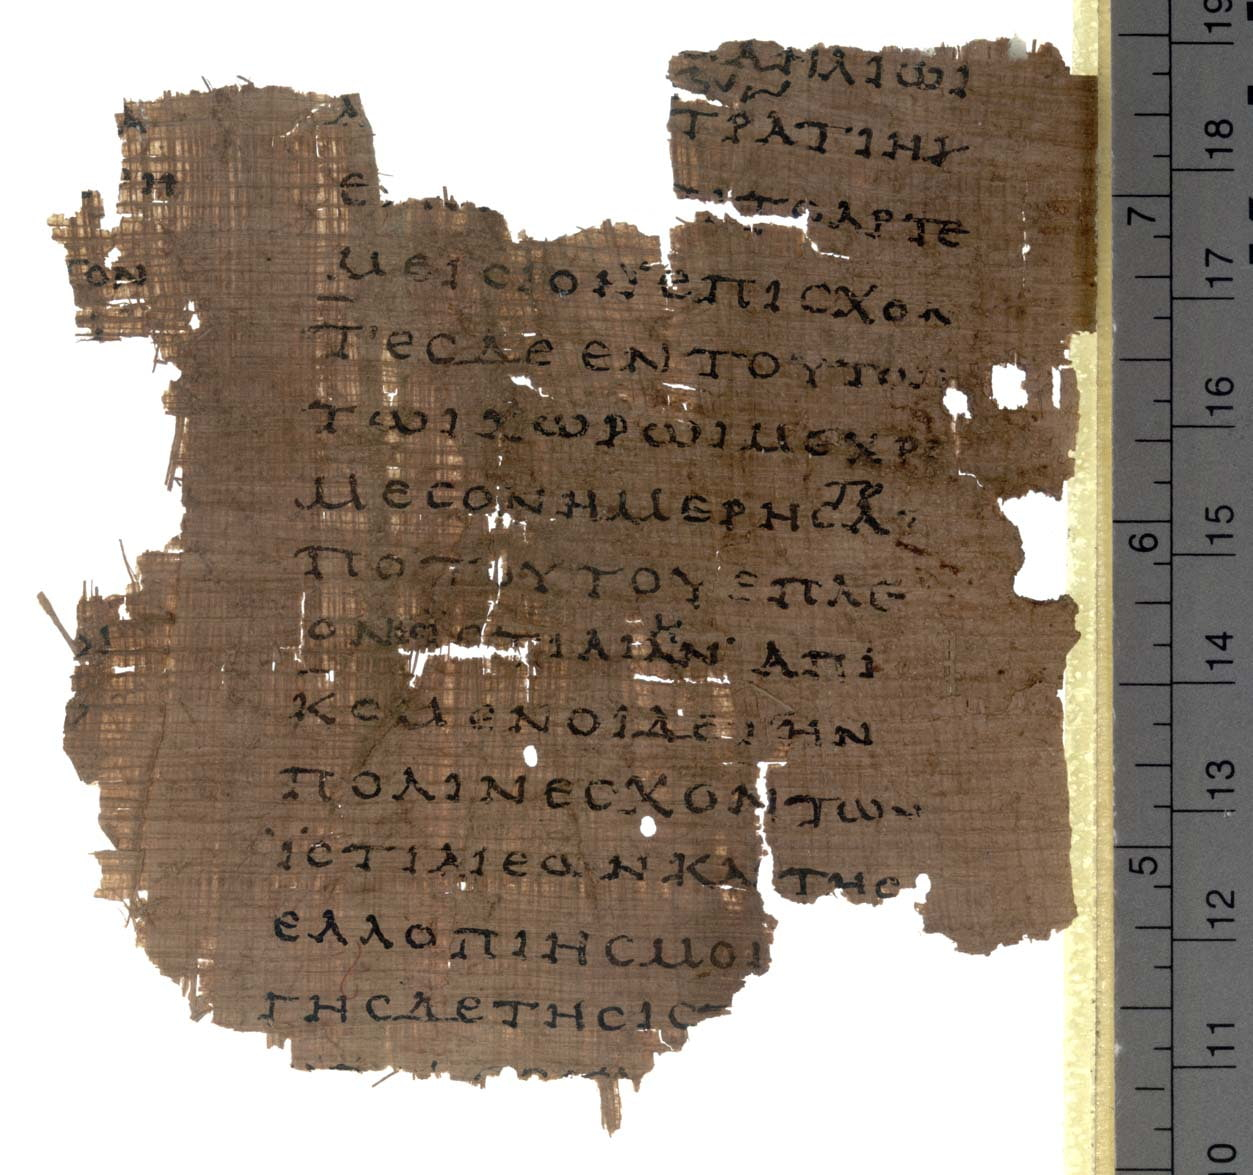 ΑΗΛΙΩΙ
ΤΡΑΤΙΗ
ΤΟΑΡΤΕ
ΤΟΝ
ΜΕΙCΙΟΝΕΠΙCΧΟΝ
ΤΕCΔΕΕΝΤΟΥΤΩΙ
ΤΩΙΧΩΡΩΙΜΕΧΡΙ
ΜΕCΟΝΗΜΕΡΗCΤΟΑ
ΠΟΤΟΥΤΟΥΕΠΛΕ
ΟΝΕCΙCΤΙΑΙΗΝ·ΑΠΙ
ΚΟΜΕΝΟΙΔΕΤΗΝ
ΠΟΛΙΝΕCΧΟΝΤΩΝ
ΪCΤΙΑΙΕΩΝΚΑΙΤΗC
ΕΛΛΟΠΙΗCΜΟΙ
ΓΗCΔΕΤΗCΙC